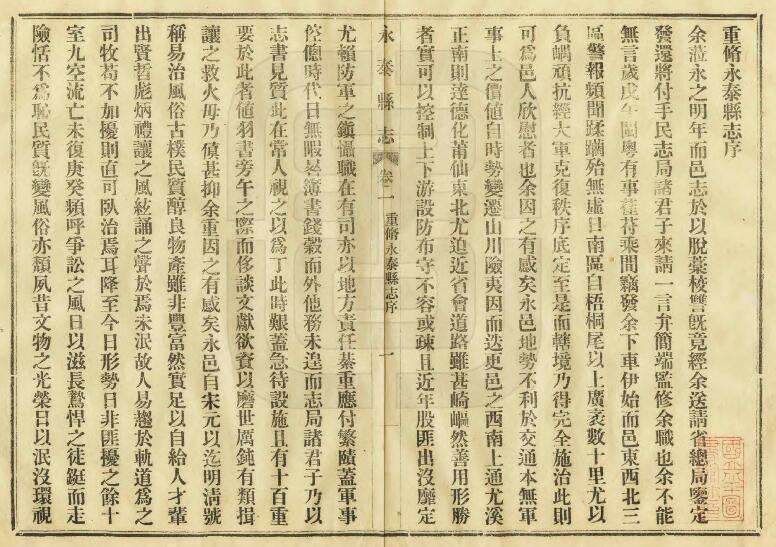 重脩永泰縣志序
余蒞永之明年而邑志於以脫藁校讐旣竟經余送請省總局鑒定
發還將付手民志局諸君子來請一言弁簡端監修余職也余不能
無言歲戊午閩粵有事萑苻乘間竊發余下車伊始而邑東西北三
區警報頻聞蹂躪殆無虛日南區白梧桐尾以上廣袤數十里尤以
負嵎頑抗經大軍克復秩序底定至是而轄境乃得完全施治此則
可爲邑人欣慰者也余因之有感矣永邑地勢不利於交通本無軍
事上之價値自時勢變遷山川險夷因而迭更邑之西南上通尤溪
正南則達德化莆仙東北尤迫近省會道路雖甚崎嶇然善用形勝
者實可以控制上下游設防布守不容或疎且近年股匪出沒靡定
永泰縣志
卷二
重脩永泰縣志序
一
尤賴防軍之鎭懾職在有司亦以地方責任綦重應付繁賾蓋軍事
倥傯時代日無暇晷簿書錢糓而外他務未遑而志局諸君子乃以
志書見質此在常人視之以爲丁此時艱蓋急待設施且有十百重
要於此者値羽書旁午之際而侈談文獻欲資以磨世厲鈍有類揖
讓之救火毋乃傎甚抑余重因之有感矣永邑自宋元以迄明淸號
稱易治風俗古樸民質醇良物產雖非豐富然實足以自給人才輩
出賢哲彪炳禮讓之風絃誦之聲於焉未泯故人易趨於軌道爲之
司牧苟不加擾則直可臥治焉耳降至今日形勢日非匪擾之餘十
室九空流亡未復庚癸頻呼爭訟之風日以滋長驁悍之徒鋌而走
險恬不爲恥民質旣變風俗亦頹夙昔文物之光榮日以泯沒環視